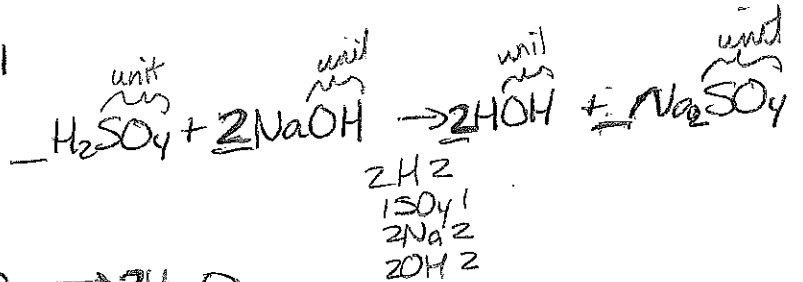 unit unit unit unit
_H₂SO₄ + 2NaOH → 2HOH + _Na₂SO₄
2H2
1SO₄1
2Na2
2OH2